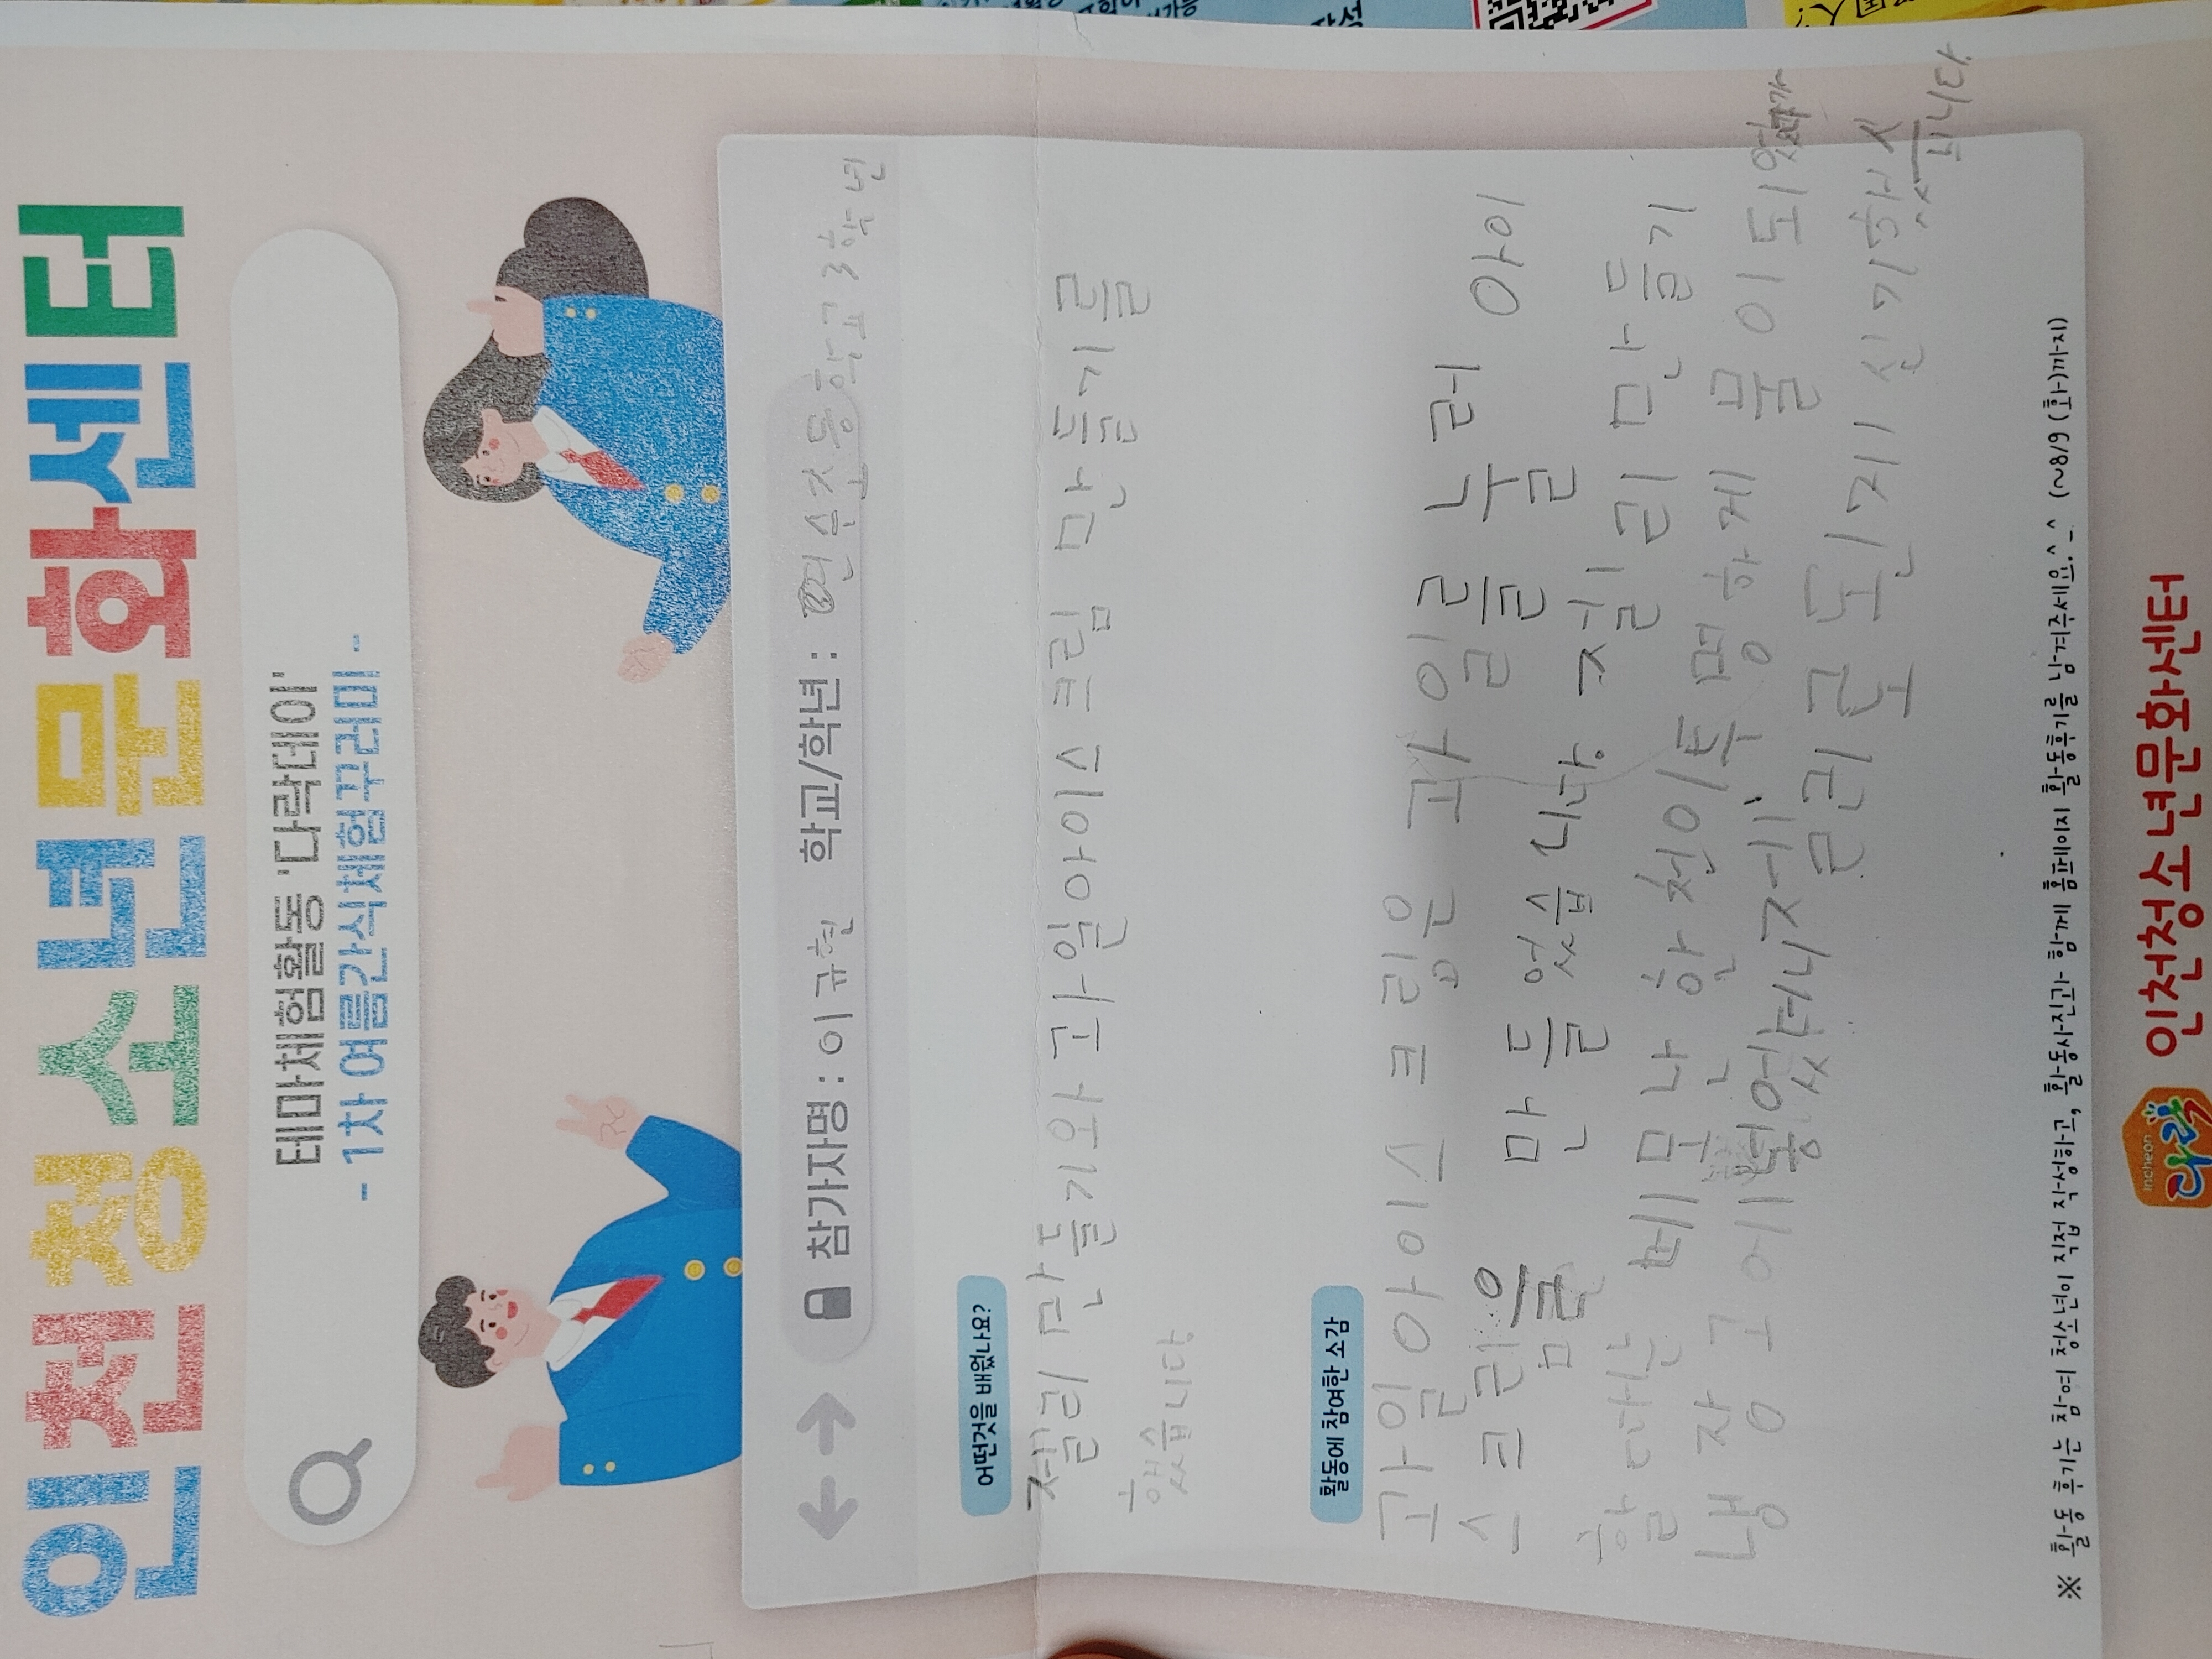 인천청소년문화센터
테마체험활동 '다락데이'
- 1차 여름간식체험꾸러미 -
참가자명 : 이규현 학교/학년 : 연수초등학교 3학년
어떤것을 배웠나요?
젤리 만들기와 과일아이스크림 만들기를
했습니다
활동에 참여한 소감
과일아이스크림은 과일을 눌러 아이
스크림을 만들었습니다 젤리 만들기
할 때는 네모난 한천이 투명하게 물이 되었다가
냉장고에 넣었더니 젤리로 변신한게 신기하
습니다
※ 활동 후기는 참여 청소년이 직접 작성하고, 활동사진과 함께 홈페이지 활동후기를 남겨주세요.^_^ (~8/9 (화)까지)
incheon
다락
인천청소년문화센터